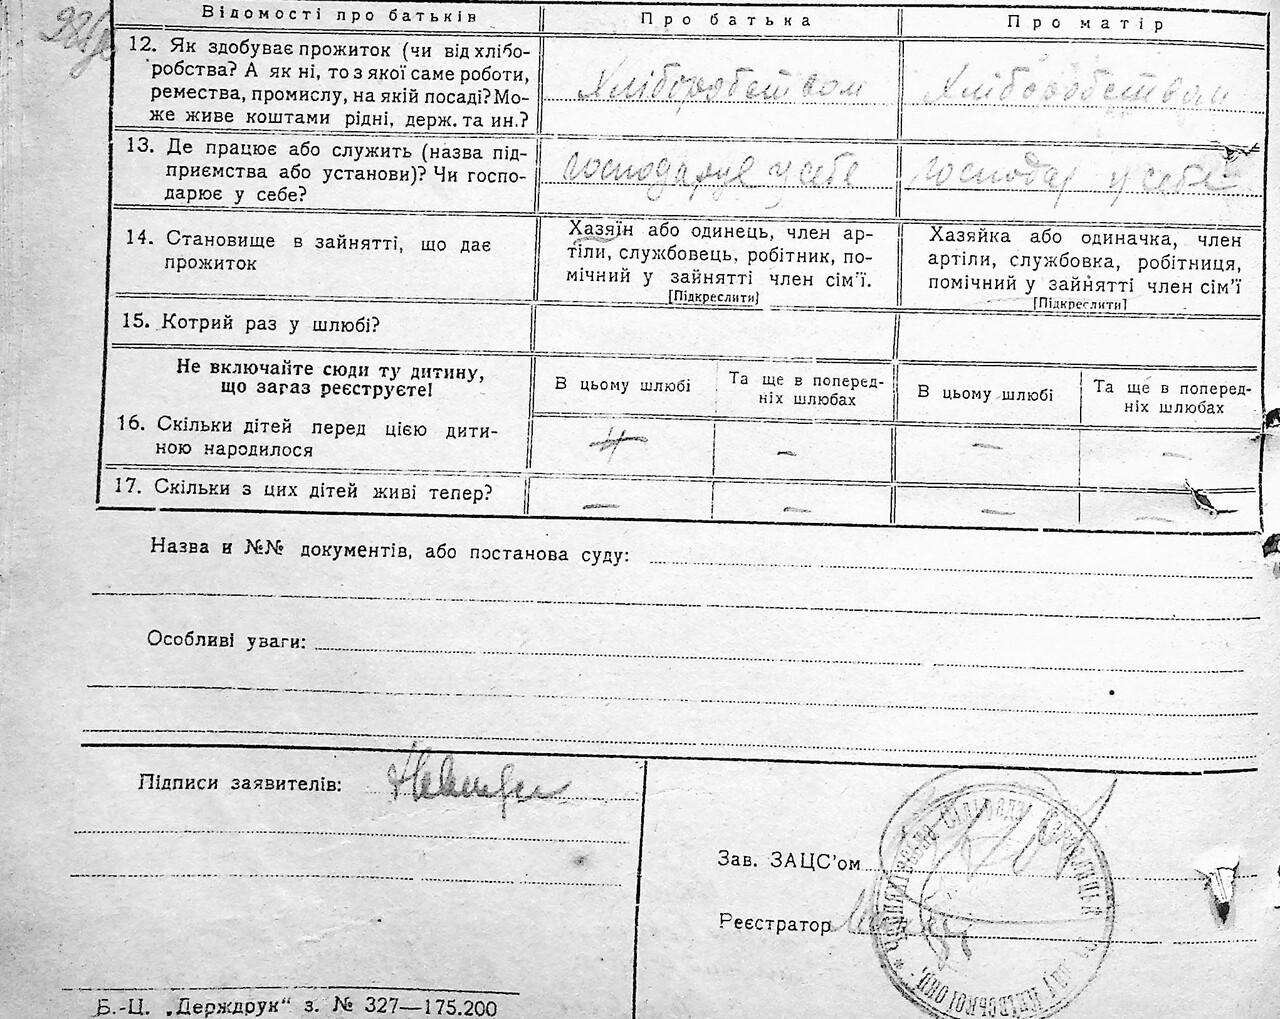 Відомості про батьків Про батька Про матір
12. Як здобуває прожиток (чи від хлібо-
робства? А як ні, то з якої саме роботи,
ремества, промислу, на якій посаді? Мо-
же живе коштами рідні, держ. та ин.?
Хліборобством Хліборобством
13. Де працює або служить (назва під-
приємства або установи)? Чи госпо-
дарює у себе?
господарує у себе господар у себе
14. Становище в зайнятті, що дає
прожиток
Хазяїн або одинець, член ар-
тіли, службовець, робітник, по-
мічний у зайнятті член сім'ї.
[Підкреслити]
Хазяйка або одиначка, член
артіли, службовка, робітниця,
помічний у зайнятті член сім'ї
[Підкреслити]
15. Котрий раз у шлюбі?
Не включайте сюди ту дитину,
що загаз реєструєте!
В цьому шлюбі
Та ще в поперед-
ніх шлюбах
В цьому шлюбі
Та ще в поперед-
ніх шлюбах
16. Скільки дітей перед цією дити-
ною народилося
4 – – –
17. Скільки з цих дітей живі тепер?
– – – –
Назва и №№ документів, або постанова суду:
Особливі уваги:
Підписи заявителів:
Зав. ЗАЦС'ом
Реєстратор
Б.-Ц. „Держдрук“ з. № 327—175.200